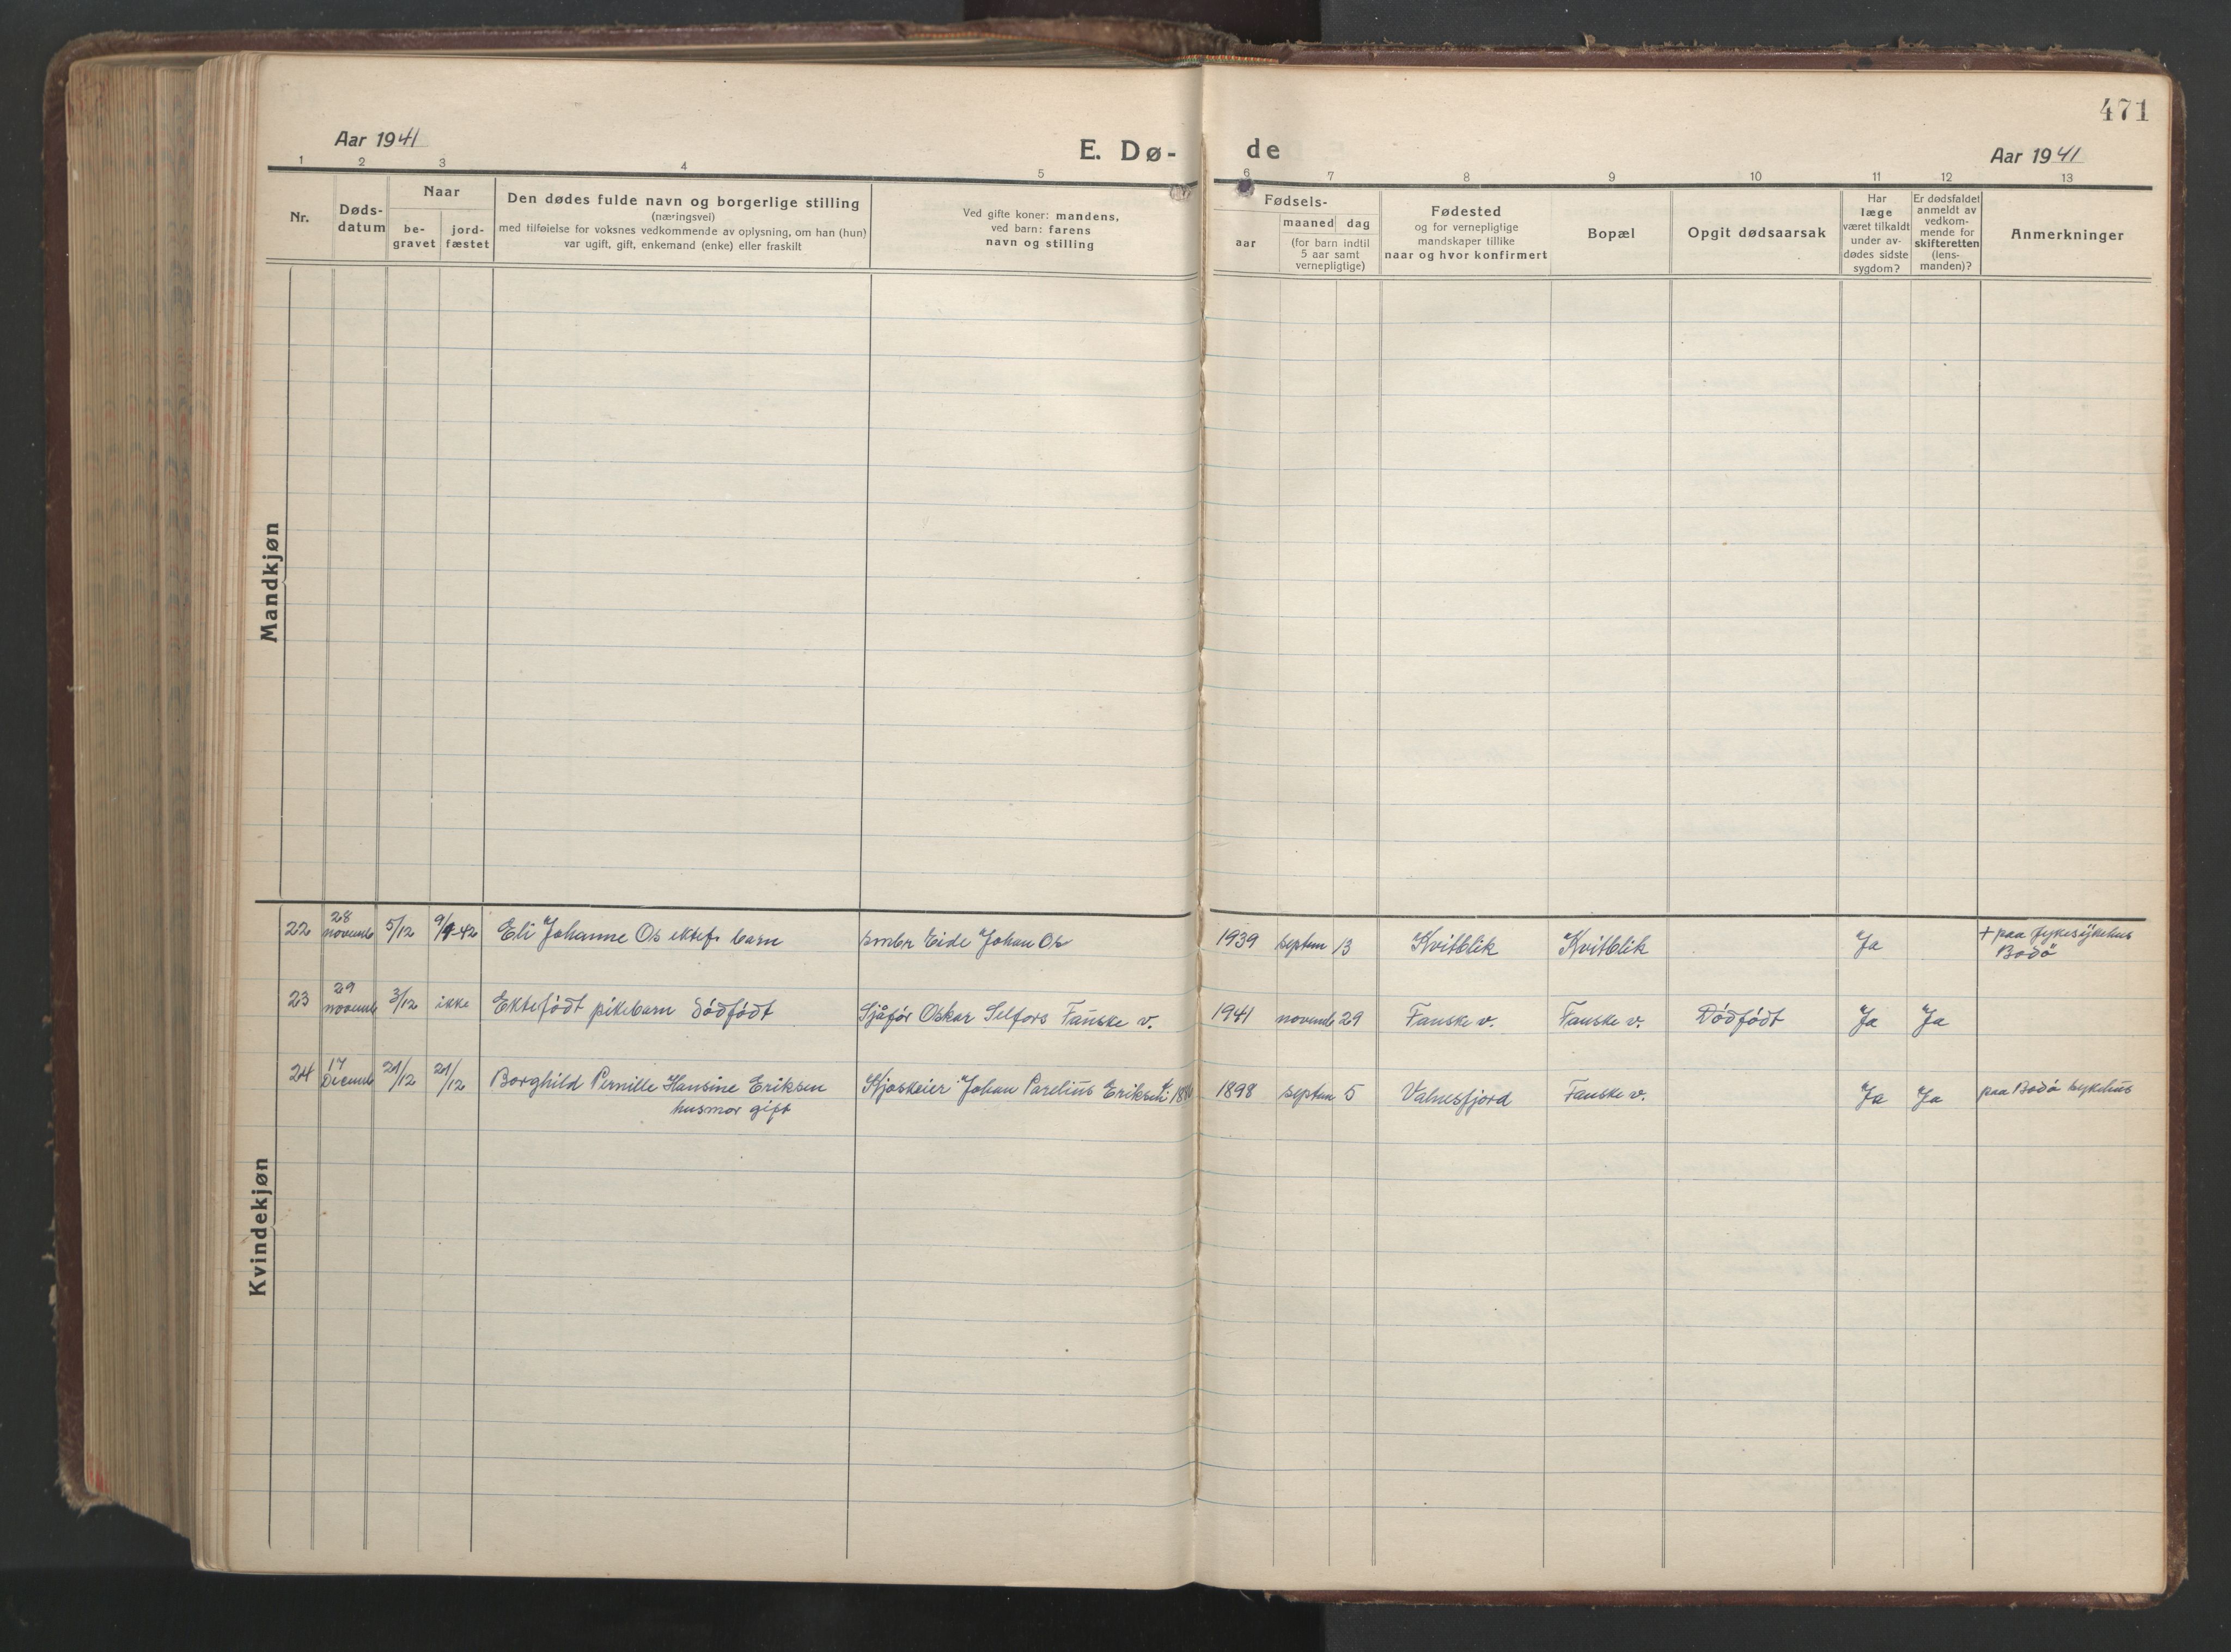 471
Aar 1941
E. Dø-
de
Aar 1941
1 2 3 4 5 6 7 8 9 10 11 12 13
Nr.
Døds-
datum
Naar
be-
gravet
jord-
fæstet
Den dødes fulde navn og borgerlige stilling
(næringsvei)
med tilføielse for voksnes vedkommende av oplysning, om han (hun)
var ugift, gift, enkemand (enke) eller fraskilt
Ved gifte koner: mandens,
ved barn: farens
navn og stilling
Fødsels-
aar
maaned dag
(for barn indtil
5 aar samt
vernepligtige)
Fødested
og for vernepligtige
mandskaper tillike
naar og hvor konfirmert
Bopæl
Opgit dødsaarsak
Har
læge
været tilkaldt
under av-
dødes sidste
sygdom?
Er dødsfaldet
anmeldt av
vedkom-
mende for
skifteretten
(lens-
manden)?
Anmerkninger
Mandkjøn
Kvindekjøn
22 28 novemb 5/12 9/1-42 Eli Johanne Os ektef. barn småbr Eide Johan Os 1939 septem 13 Kvitblik Kvitblik Ja + paa fylkesykehus
Bodö
23 29 novemb 3/12 ikke Ektefödt pikebarn dödfödt Sjåfør Oskar Selfors Fauske v. 1941 novemb 29 Fauske v. Fauske v. Dödfödt Ja Ja
24 17 Decemb 21/12 21/12 Borghild Pernille Hansine Eriksen Kjoskeier Johan Parelius Eriksen 1898 septem 5 Valnesfjord Fauske v. Ja Ja paa Bodö sykehus
husmor gift